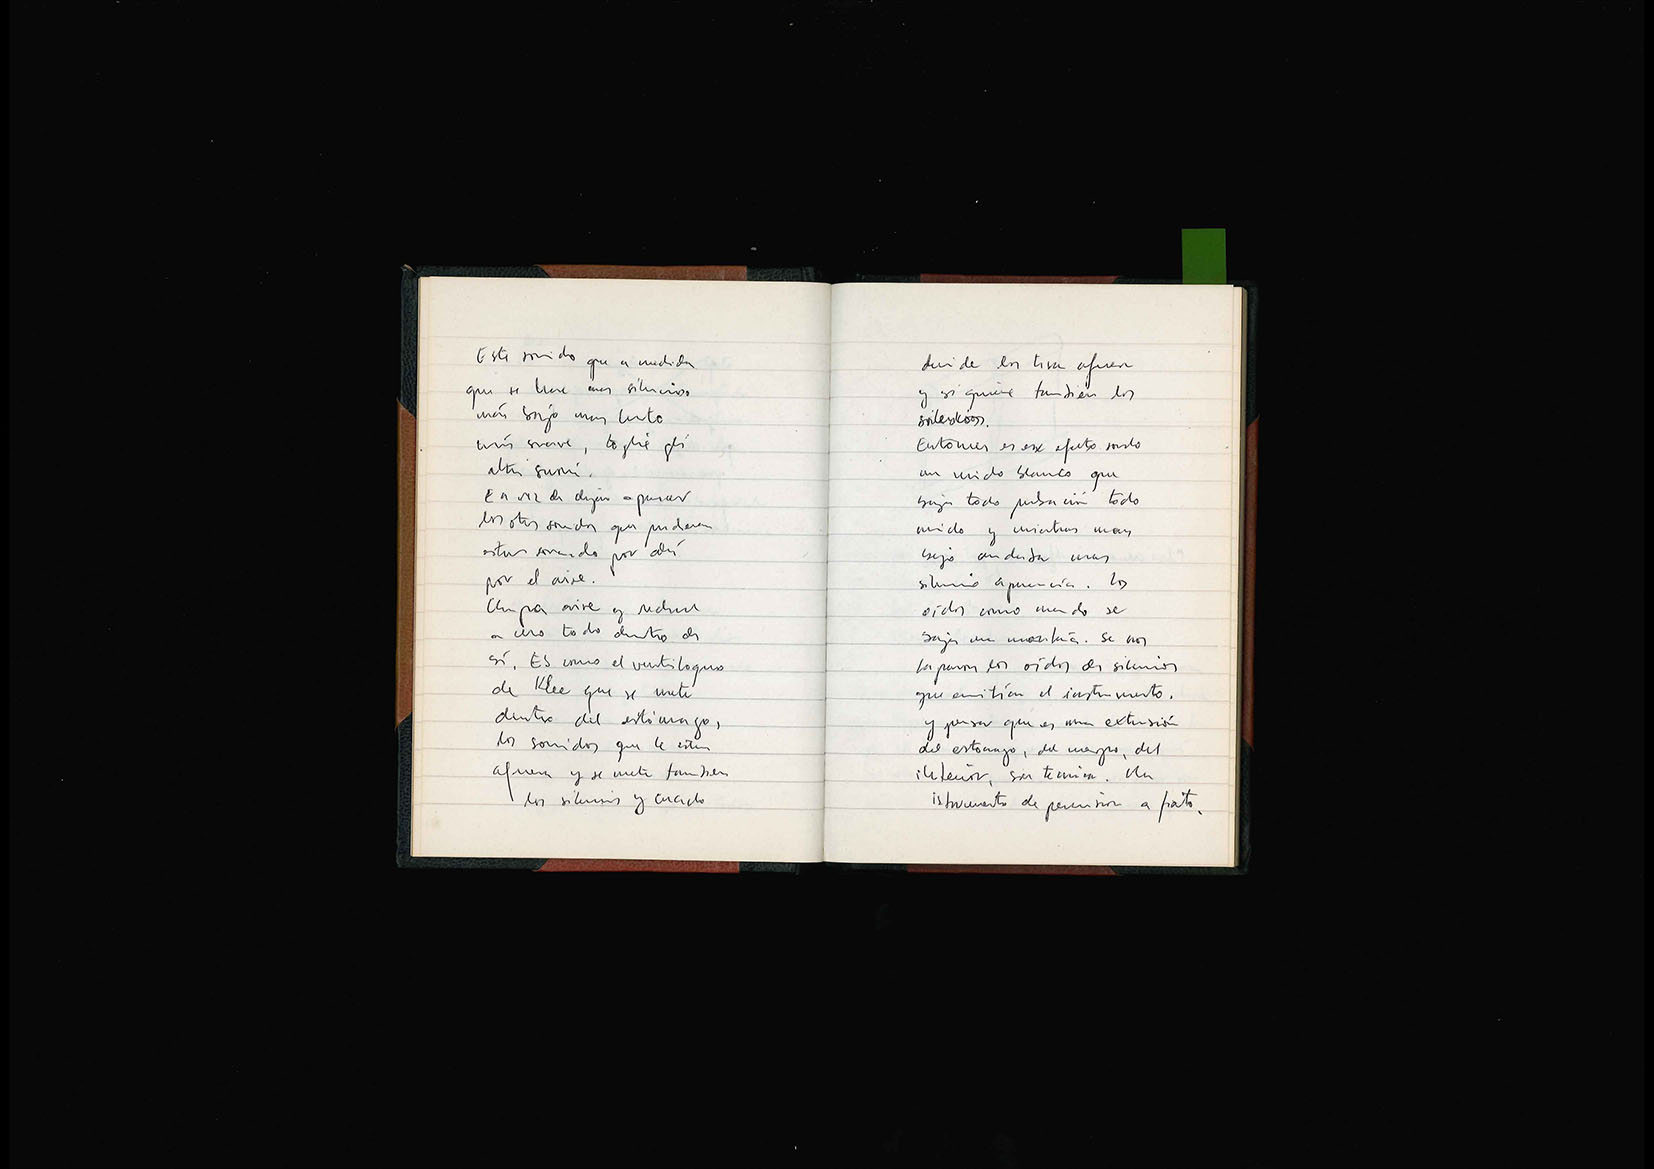 Este sonido que a medida
que se hace mas silencioso
más bajo mas lento
más suave, toglie gli
altri suoni.
En vez de dejar aparecer
los otros sonidos que pudieran
estar sonando por ahí
por el aire.
Chupa aire y reduce
a cero todo dentro de
sí. Es como el ventiloquo
de Klee que se mete
dentro del estómago,
los sonidos que le están
afuera y se mete tambien
los silencios y cuando
decide los tira afuera
y si quiere tambien los
silencios.
Entonces es ese efecto sordo
un ruido blanco que
baja todo pulsación todo
ruido y mientras mas
bajo andaba mas
silencio aparecía. Los
oídos como cuando se
baja una montaña. Se nos
taparon los oídos de silencios
que emitían el instrumento.
y pensar que es una extensión
del estomago, del cuerpo, del
interior, sin tecnica. Un
istrumento de percusion a fiato.